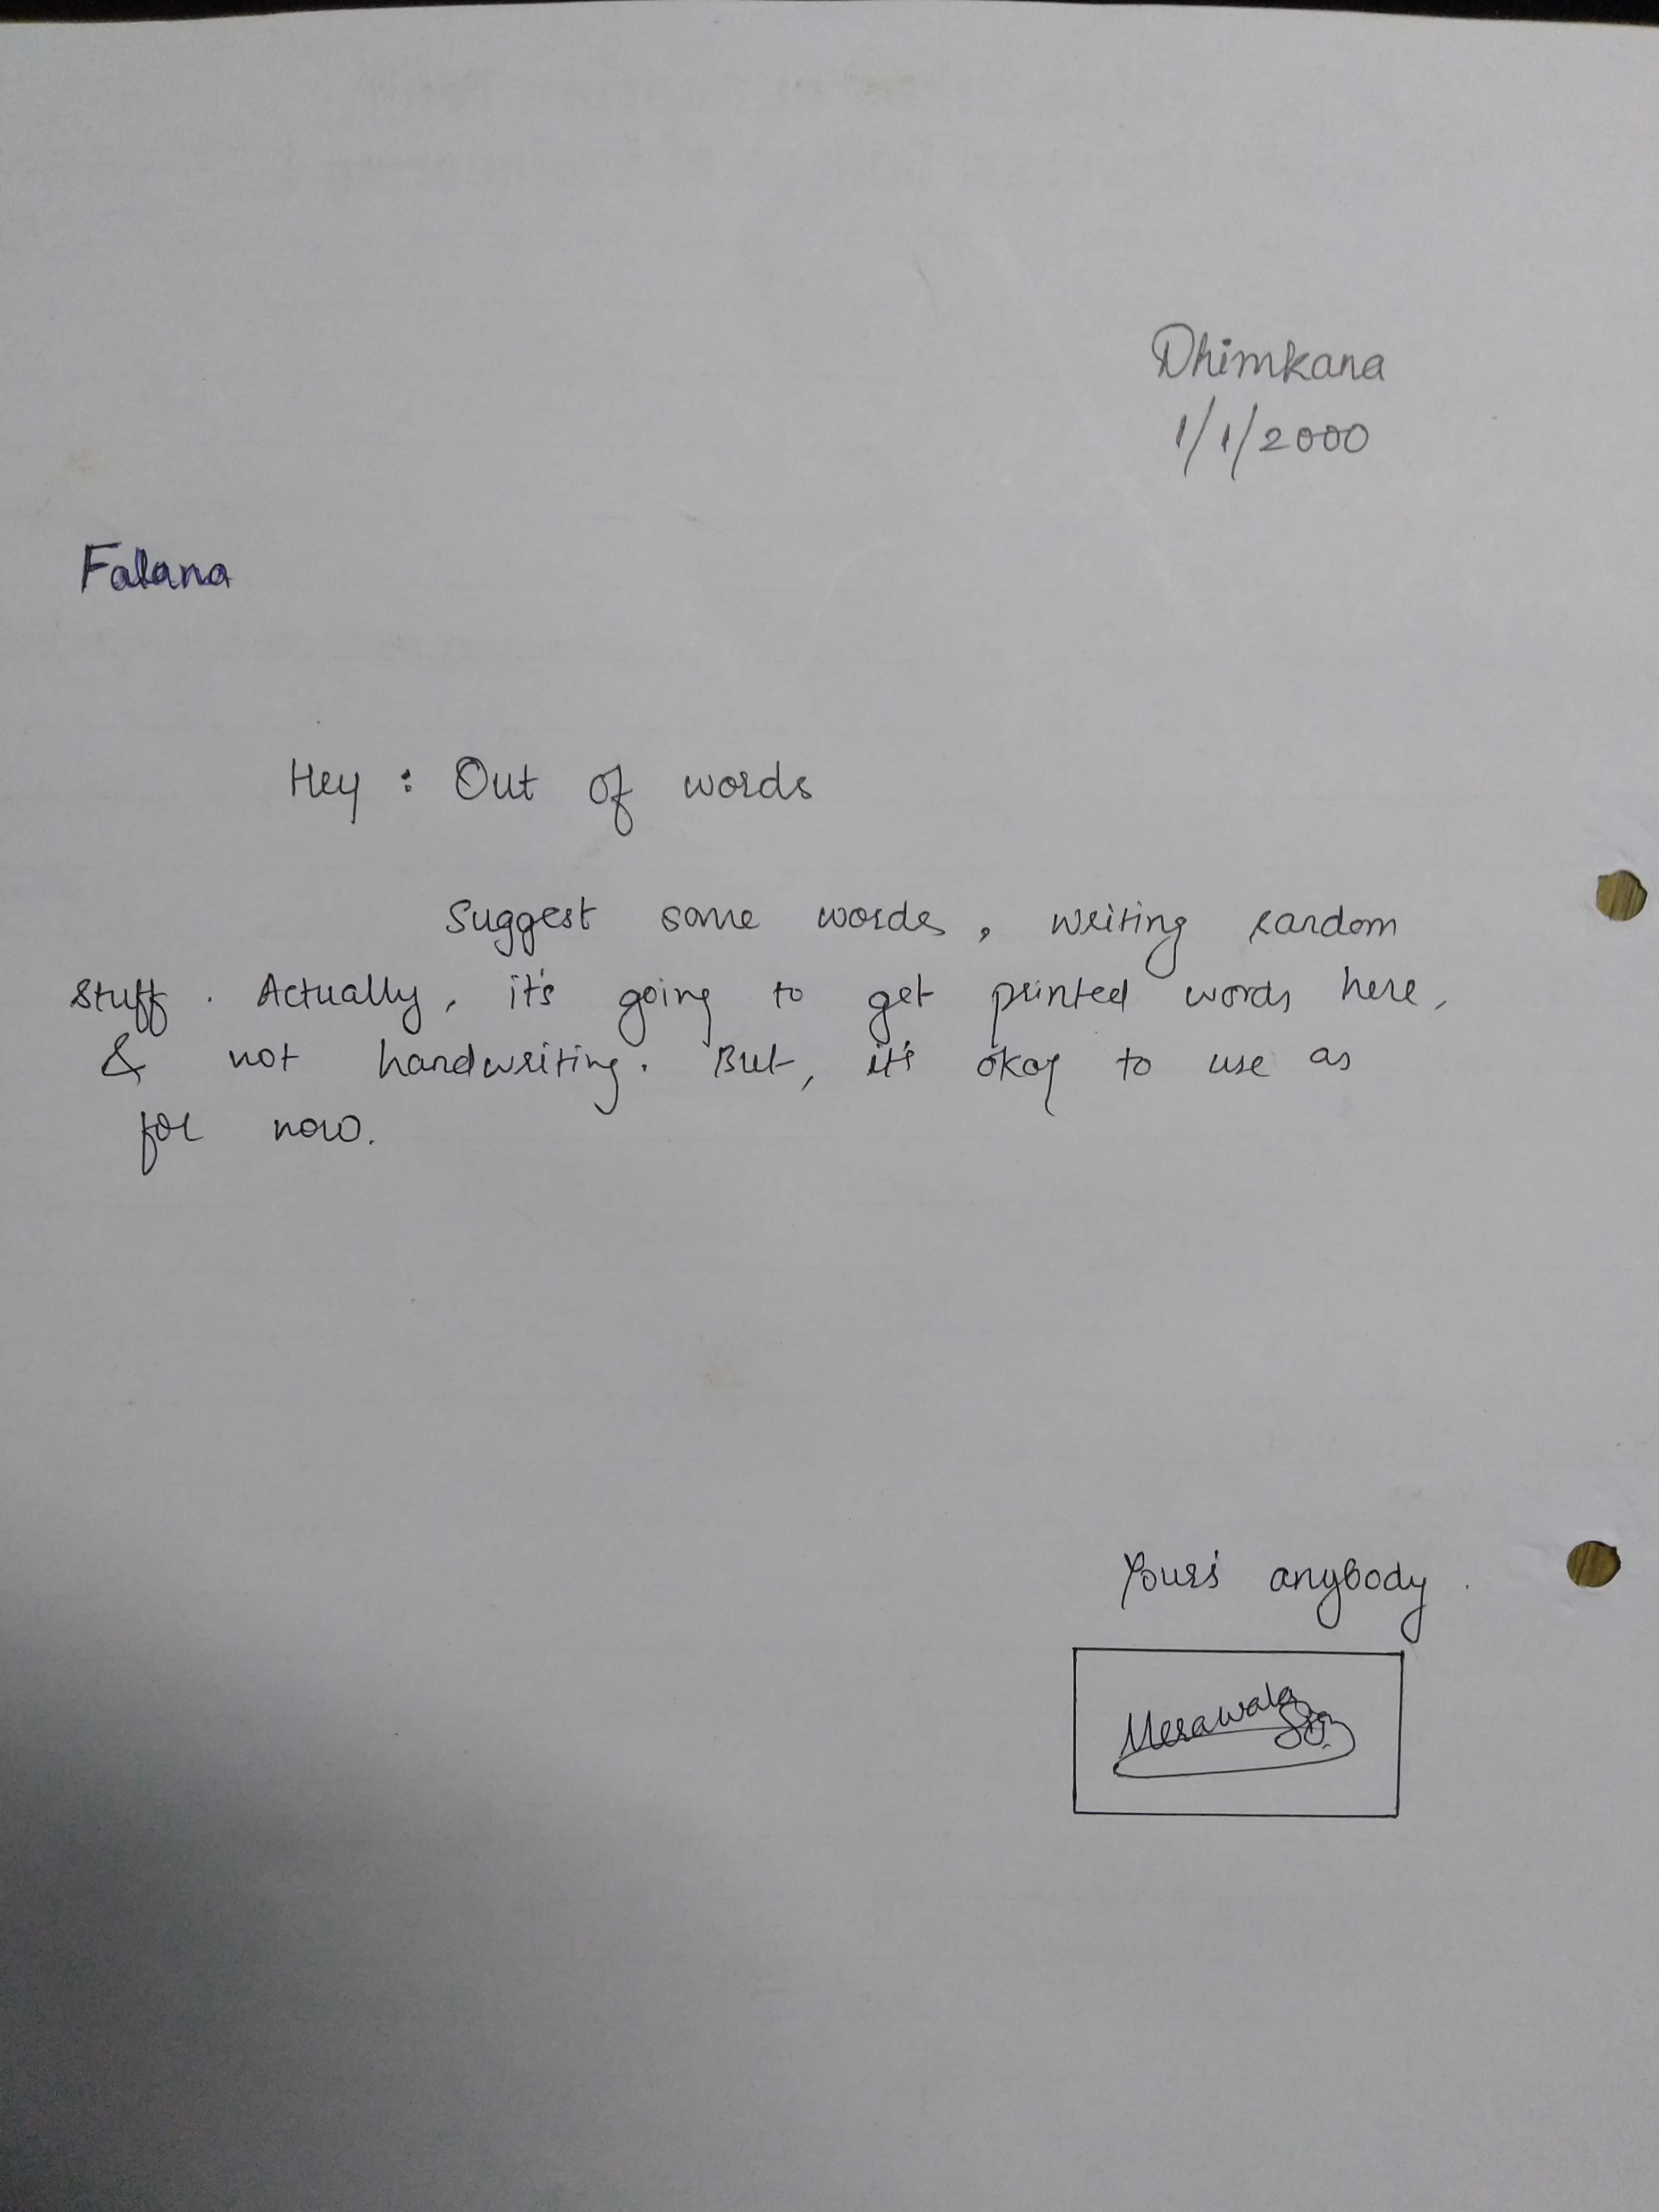 Dhimkana
1/1/2000
Falana
Hey : Out of words
Suggest some words, writing random
stuff. Actually, it's going to get printed words here,
& not handwriting. But, it's okay to use as
for now.
Your's anybody.
Merawala